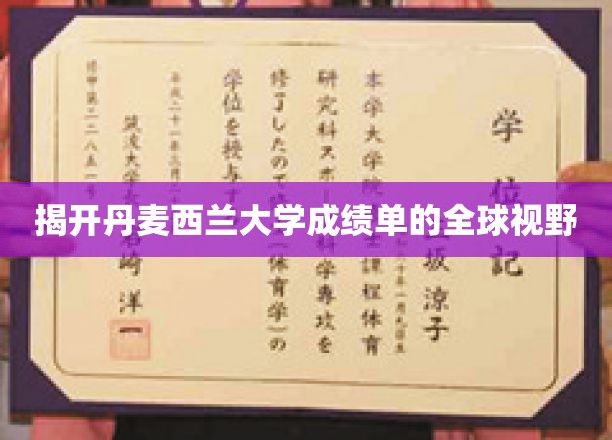 揭开丹麦西兰大学成绩单的全球视野
学位記
坂涼子
本学大学院 課程体育
研究科スポー 科学専攻を
修了したので (体育学)の
学位を授与す
平成二十一年三月二
筑波大学長 岩崎洋一